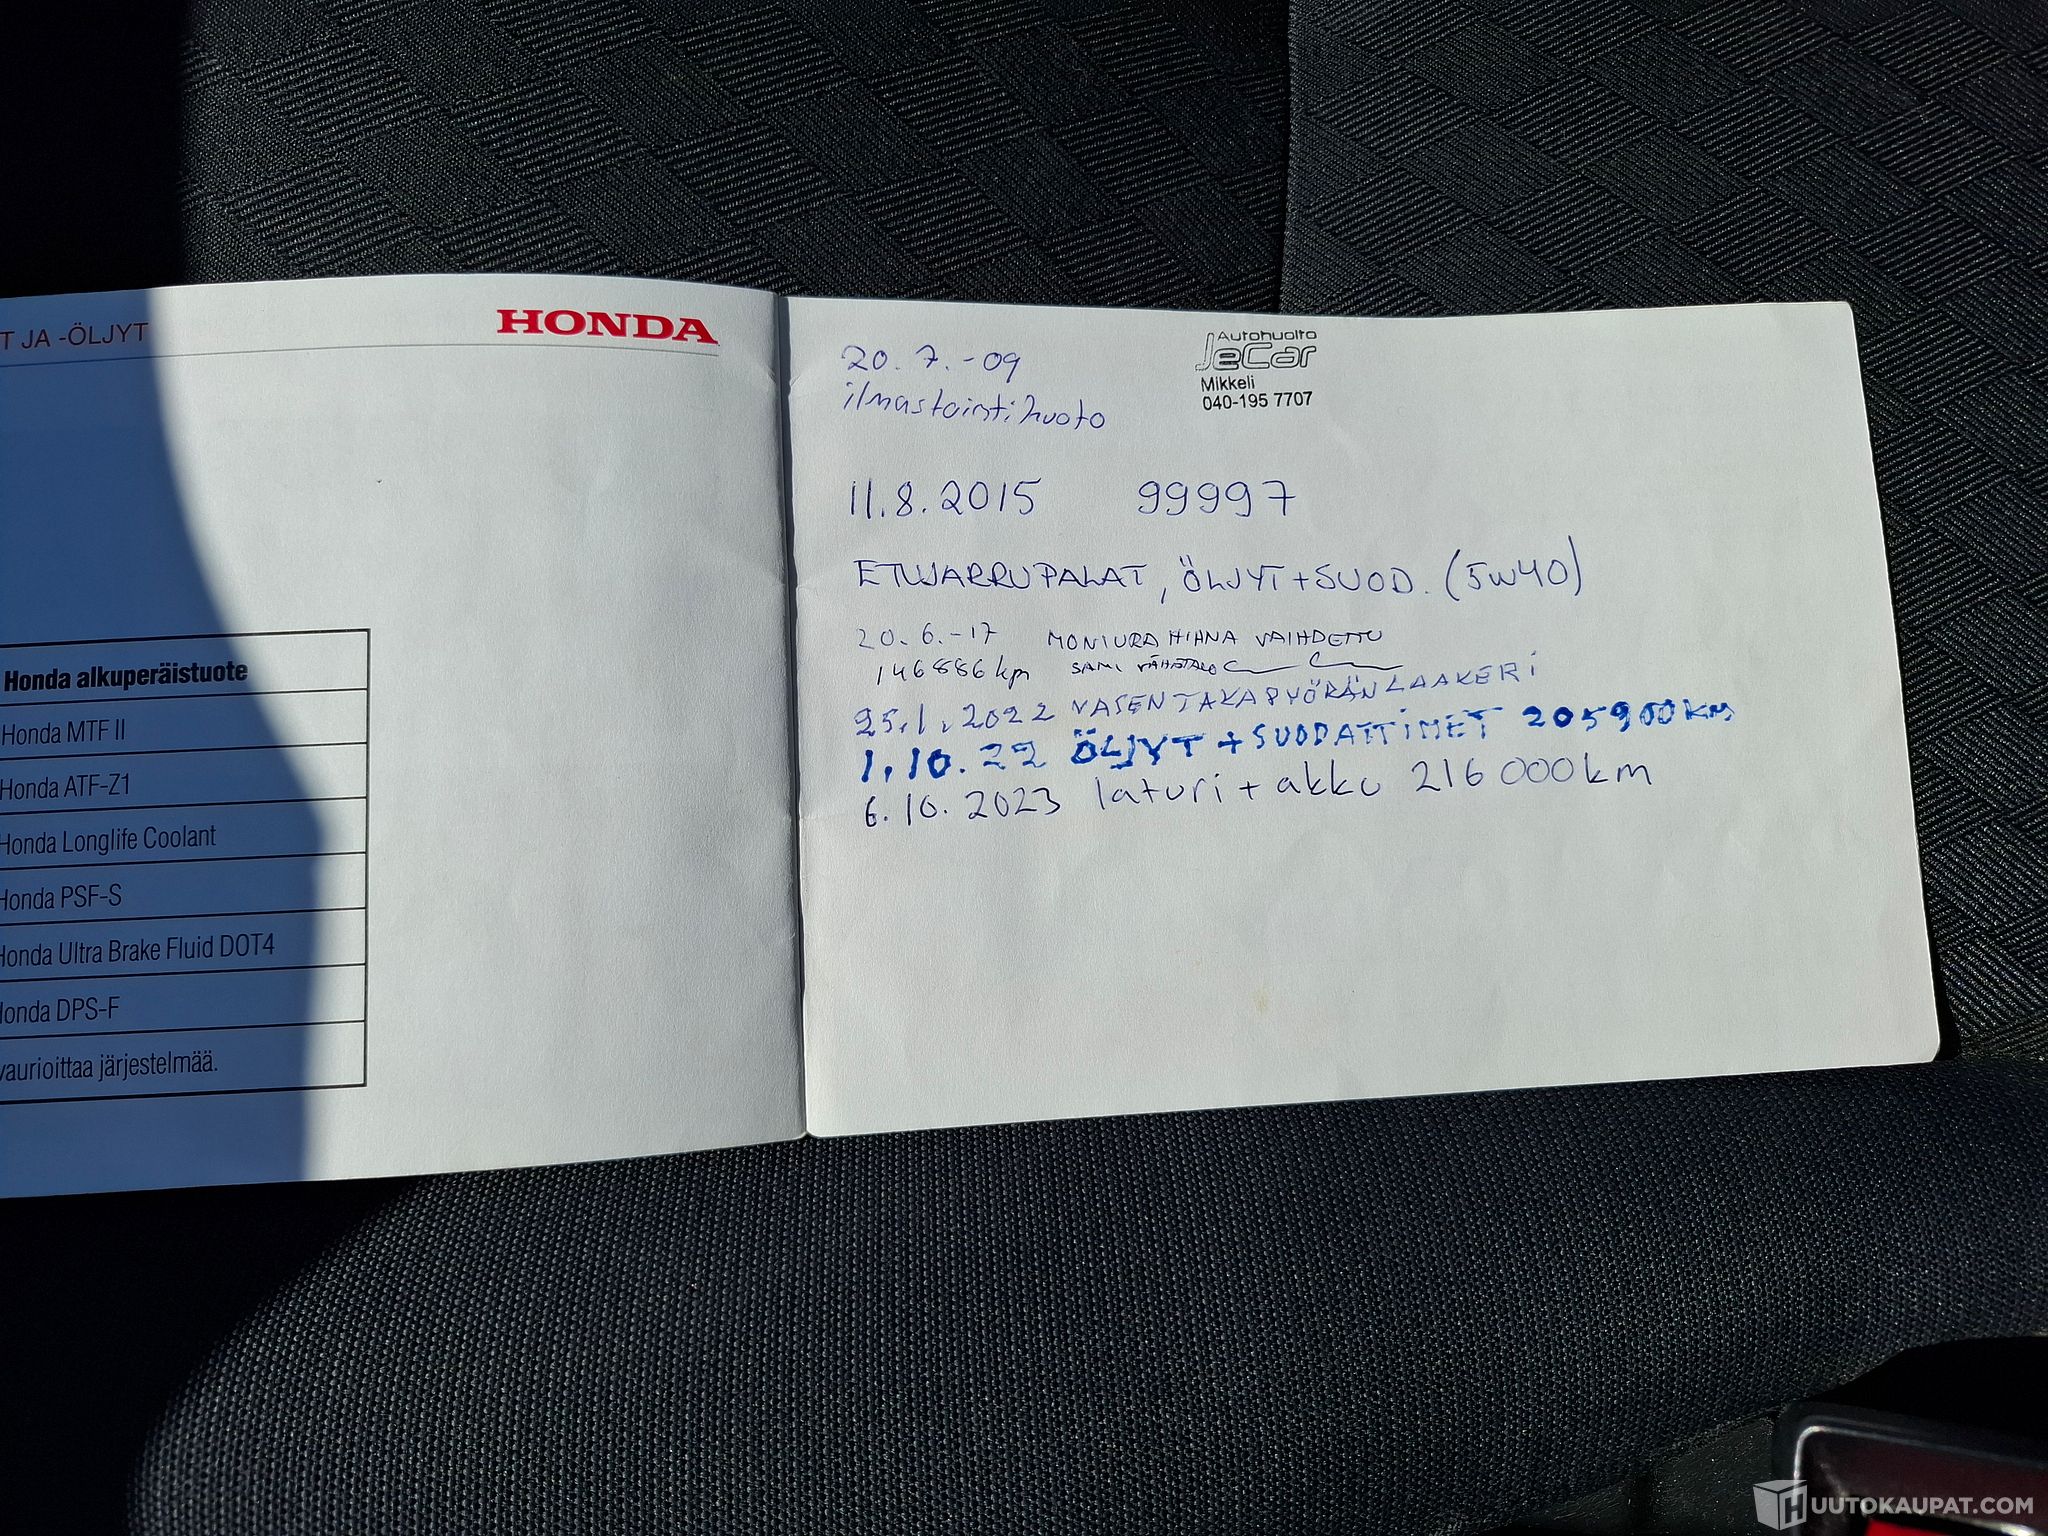 T JA -ÖLJYT
HONDA
Honda alkuperäistuote
Honda MTF II
Honda ATF-Z1
Honda Longlife Coolant
Honda PSF-S
Honda Ultra Brake Fluid DOT4
Honda DPS-F
vaurioittaa järjestelmää.
20.7.-09
ilmastointihuoto
Autohuolto
JeCar
Mikkeli
040-195 7707
11.8.2015 99997
ETUJARRUPALAT, ÖLJYT+SUOD. (5W40)
20.6.-17 MONIURAHIHNA VAIHDETTU
146886 km SAMI
25.1.2022 VASEN TAKAPYÖRÄNLAAKERI
1.10.22 ÖLJYT + SUODATTIMET 205900 KM
6.10.2023 laturi + akku 216 000 km
UUTOKAUPAT.COM